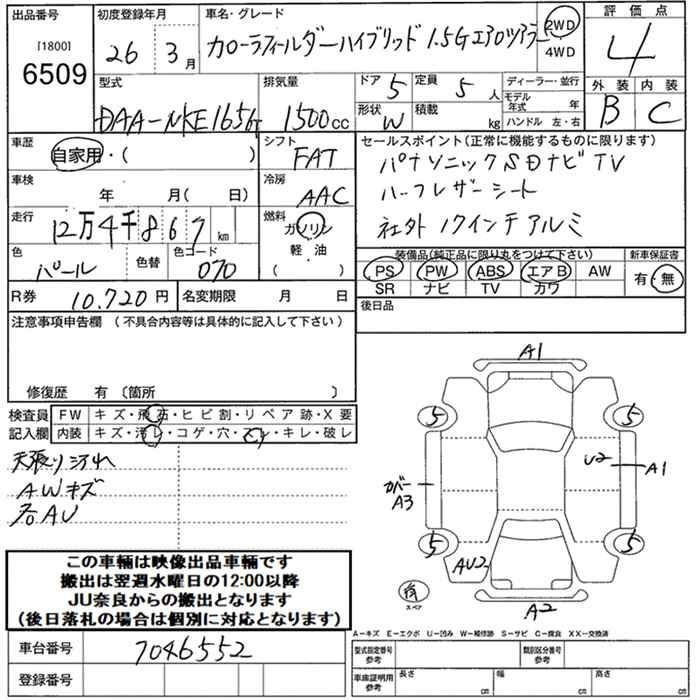 出品番号 初度登録年月 車名・グレード 評価点
[1800]
6509
26 3月 カローラフィールダーハイブリッド 1.5Gエアロツアラー 2WD 4WD 4
型式 排気量 ドア 定員 ディーラー・並行 外装 内装
DAA-NKE165G 1500cc 5 5人 モデル年式 年 B C
形状 W 積載 kg ハンドル 左・右
車歴 シフト セールスポイント(正常に機能するものに限ります)
自家用・( ) FAT パナソニックSDナビTV
車検 冷房 ハーフレザーシート
年 月( 日) AAC 社外17インチアルミ
走行 燃料
12万4千867km ガソリン
軽・油
( )
色 色替 色コード
パール 070
装備品(純正品に限り丸をつけて下さい) 新車保証書
PS PW ABS エアB AW 有・無
SR ナビ TV カワ
R券 10,720円 名変期限 月 日 後日品
注意事項申告欄 (不具合内容等は具体的に記入して下さい)
修復歴 有 〔箇所 〕
検査員 FW キズ・飛石・ヒビ割・リペア跡・X要
記入欄 内装 キズ・汚レ・コゲ・穴・スレ・キレ・破レ
天張り汚れ
AWキズ
各AU
A1
5 5
U2 A1
カバー A3
5 5
AU2
スペア
A2
この車輌は映像出品車輌です
搬出は翌週水曜日の12:00以降
JU奈良からの搬出となります
(後日落札の場合は個別に対応となります)
A-キズ E-エクボ U-凹み W-補修跡 S-サビ C-腐食 XX-交換済
車台番号 7046552
型式指定番号 参考 類別区分番号 参考
登録番号
車庫証明用 参考 長さ cm 幅 cm 高さ cm